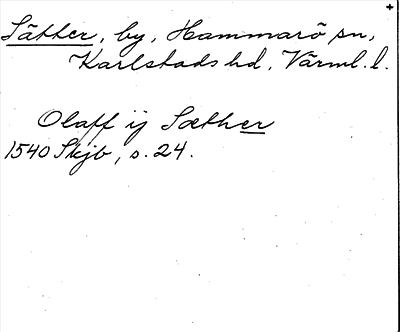 Sätter, by, Hammarö sn,
Karlstads hd, Värml. l.
Olaff ij Sæther
1540 Skjb, s. 24.